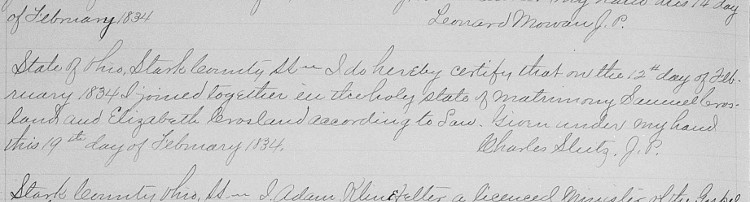 my hand this 14 day
of February 1834 Leonard Mowan J.P.
State of Ohio, Stark County SS I do hereby certify that on the 12th day of Feb-
ruary 1834 I joined together in the holy state of matrimony Samuel Cros-
land and Elizabeth Crosland according to Law. Given under my hand
this 19th day of February 1834. Charles Slutz, J.P.
Stark County Ohio, SS I Adam Klinefelter a licenced Minister of the Gospel